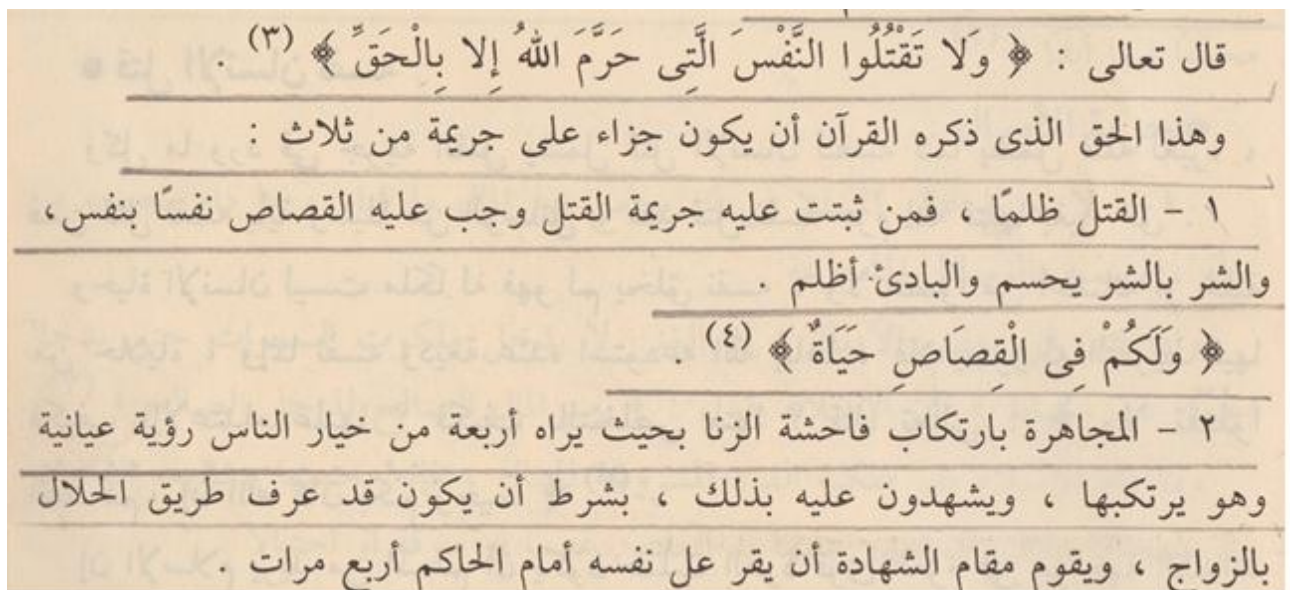 قال تعالى : ﴿ وَلَا تَقْتُلُوا النَّفْسَ الَّتِى حَرَّمَ اللهُ إِلا بِالْحَقِّ ﴾ (٣) .
وهذا الحق الذى ذكره القرآن أن يكون جزاء على جريمة من ثلاث :
١ - القتل ظلمًا ، فمن ثبتت عليه جريمة القتل وجب عليه القصاص نفسًا بنفس ،
والشر بالشر يحسم والبادئ أظلم .
﴿ وَلَكُمْ فِى الْقِصَاصِ حَيَاةٌ ﴾ (٤) .
٢ - المجاهرة بارتكاب فاحشة الزنا بحيث يراه أربعة من خيار الناس رؤية عيانية
وهو يرتكبها ، ويشهدون عليه بذلك ، بشرط أن يكون قد عرف طريق الحلال
بالزواج ، ويقوم مقام الشهادة أن يقر عل نفسه أمام الحاكم أربع مرات .